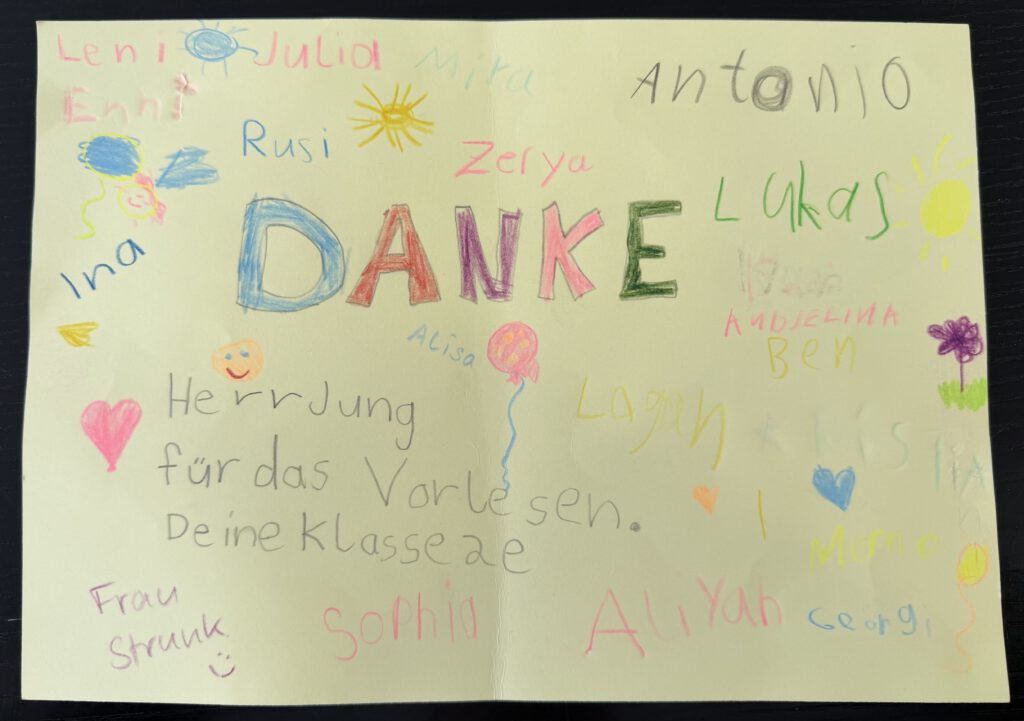 Leni Julia Mira
Antonio
Enni
Rusi
Zerya
Lukas
DANKE
Ina
ANDJELINA
Alisa
Ben
Herr Jung
für das Vorlesen.
Deine Klasse 2e
Logan
Kristian
Georgi
Sophia
Aliyah
Frau
Strunk